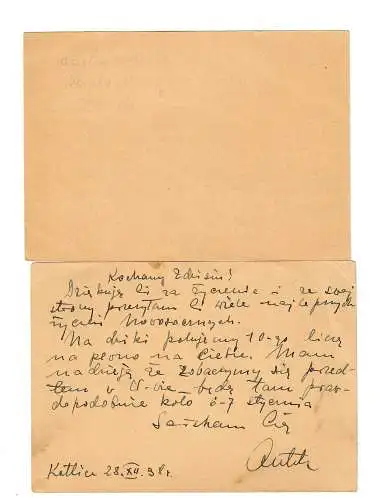 Kochany Zbisiu!
Dziękuję Ci za życzenia i ze swej
strony przesyłam Ci wiele najlepszych
życzeń Noworocznych.
Na dziki polujemy 10-go liczę
na pewno na Ciebie. Mam
nadzieję że zobaczymy się przed
tem w W-wie będę tam praw-
dopodobnie koło 6-7 stycznia
Ściskam Cię
28.XII.38r.